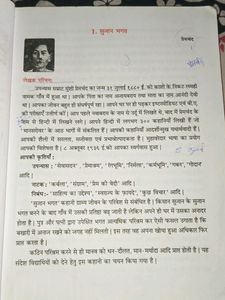 1. सुजान भगत
प्रेमचंद
लेखक परिचय:
उपन्यास सम्राट मुंशी प्रेमचंद का जन्म ३१ जुलाई १८८० ई. को काशी के निकट लमही
नामक गाँव में हुआ था। आपके पिता का नाम अजायबराय तथा माता का नाम आनंदी देवी
था। आपका जीवन बहुत ही संघर्षपूर्ण रहा। आपने घर पर ही पढ़कर इण्टरमीडियट एवं बी.ए.
की परीक्षाएँ उत्तीर्ण कीं। आप पहले नवाबराय के नाम से उर्दू में लिखते थे, बाद में प्रेमचंद के
नाम से हिन्दी में लिखने लगे। आपने हिन्दी में लगभग ३०० कहानियाँ लिखी हैं जो
'मानसरोवर' के आठ भागों में संकलित हैं। आपकी कहानियाँ आदर्शोन्मुख यथार्थवादी हैं।
आपकी शैली में सरलता, सजीवता तथा प्रभावोत्पादकता है। मुहावरेदार भाषा का प्रयोग
आपकी विशेषता है। ८ अक्टूबर १९३६ ई को आपका स्वर्गवास हुआ।
आपकी कृतियाँ :
उपन्यास : 'सेवासदन', 'प्रेमाश्रम', 'रंगभूमि', 'निर्मला', 'कर्मभूमि', 'गबन', 'गोदान'
आदि।
नाटक: 'कर्बला', 'संग्राम', 'प्रेम की वेदी' आदि।
निबंध:- 'साहित्य का उद्देश्य', 'स्वराज्य के फायदे', 'कुछ विचार' आदि।
'सुजान भगत' कहानी ग्राम्य जीवन के परिवेश से संबंधित है। किसान सुजान के सुजान
भगत बनने के बाद गाँव में उसकी प्रतिष्ठा बढ़ जाती है लेकिन अपने ही घर में उसका अनादर
होता है। पुत्र और पत्नी द्वारा उपेक्षित भगत अत्यधिक परिश्रम कर ऐसी फसल उगाता है कि
बखारी में अनाज रखने को जगह नहीं मिलती। इस तरह वह अपना खोया हुआ अधिकार फिर
प्राप्त करता है।
कठिन परिश्रम करने से ही मानव को धन-दौलत, मान-मर्यादा आदि प्राप्त होती है। यह
संदेश विद्यार्थियों को देने हेतु इस कहानी का चयन किया गया है।